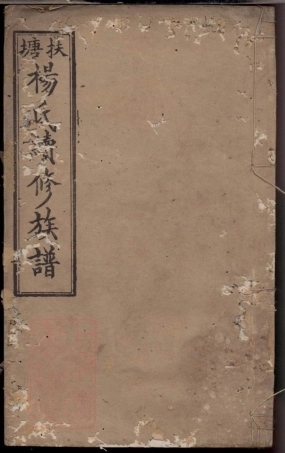 扶塘
楊氏續修族譜